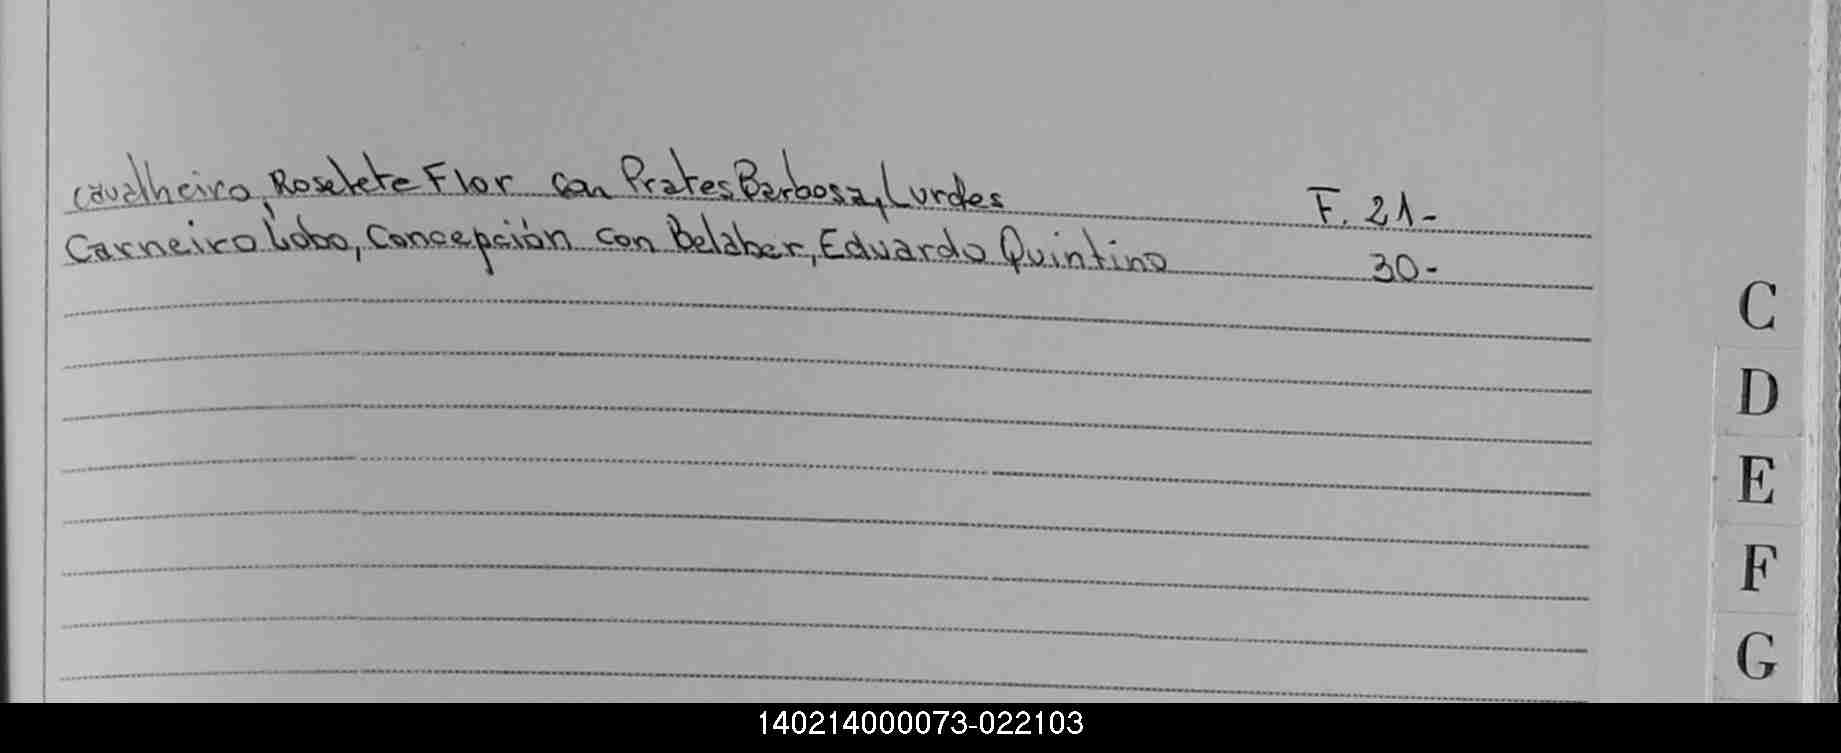 Cavalheiro, Roselete Flor con Prates Barbosa, Lurdes F. 21-
Carneiro Lobo, Concepción con Belaber, Eduardo Quintino 30-
C
D
E
F
G
140214000073-022103